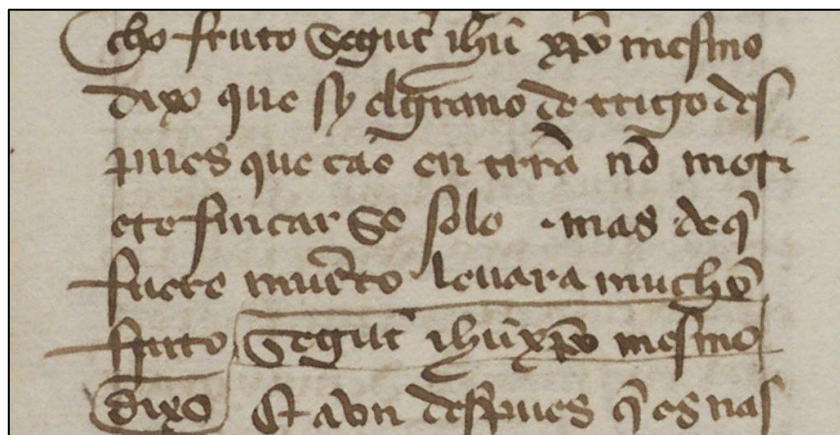 cho fruto segūt ihū xp̄o mesmo
dixo que sy el grano de trigo des
pues que cae en trr̄a nō mori
ere fincar se solo . mas de q̄
fuere muerto leuara muchō
fruto segūt ihū xp̄o mesmo
dixo Et avn despues q̄ es nas